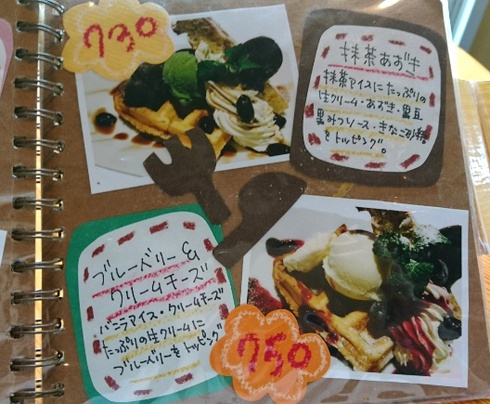 730
抹茶あずき
抹茶アイスにたっぷりの
生クリーム・あずき・黒豆
黒みつソース・きなこ
をトッピング。
ブルーベリー&
クリームチーズ
バニラアイス・クリームチーズ
たっぷりの生クリームに
ブルーベリーをトッピング
750